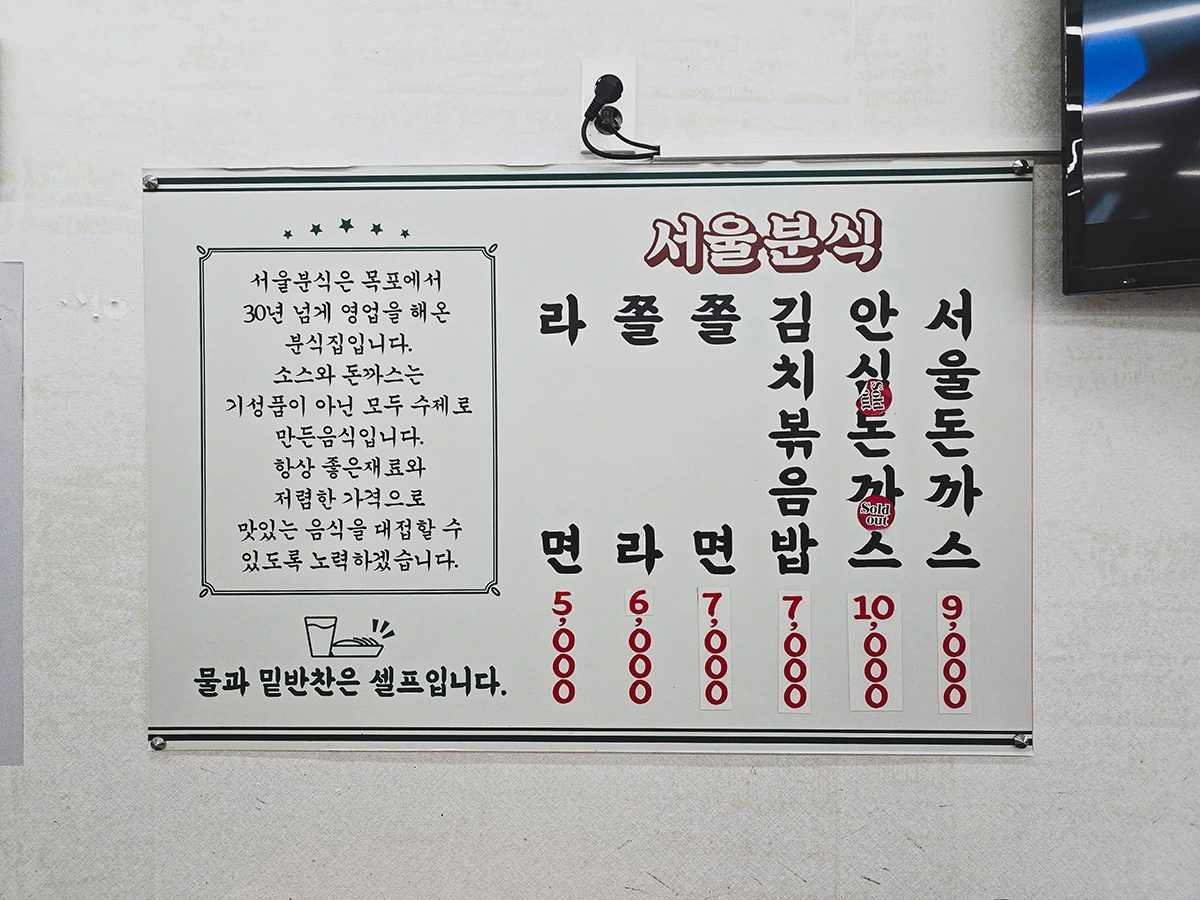 서울분식은 목포에서
30년 넘게 영업을 해온
분식집입니다.
소스와 돈까스는
기성품이 아닌 모두 수제로
만든음식입니다.
항상 좋은재료와
저렴한 가격으로
맛있는 음식을 대접할 수
있도록 노력하겠습니다.
물과 밑반찬은 셀프입니다.
서울분식
서울돈까스 9,000
안심돈까스 10,000
Sold out
Sold out
김치볶음밥 7,000
쫄면 7,000
쫄라 6,000
라면 5,000